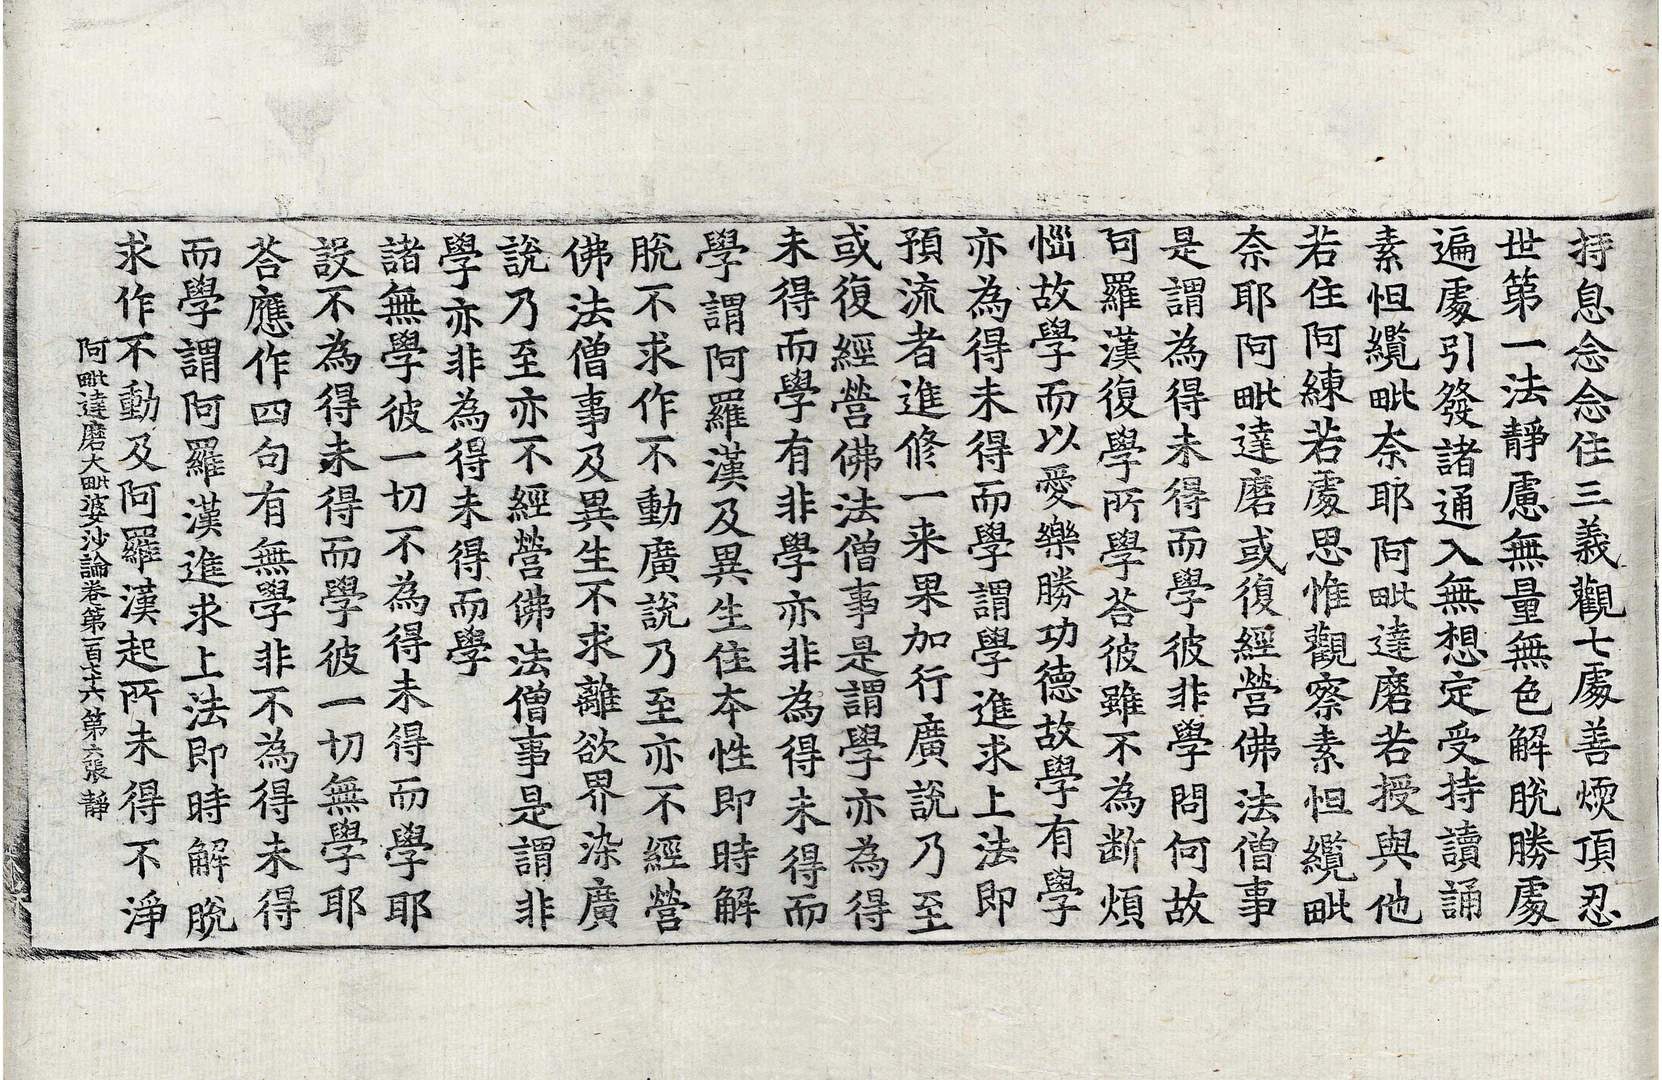 持息念念住三義觀七處善煗頂忍
世第一法靜慮無量無色解脫勝處
遍處引發諸通入無想定受持讀誦
素怛纜毗奈耶阿毗達磨若授與他
若住阿練若處思惟觀察素怛纜毗
奈耶阿毗達磨或復經營佛法僧事
是謂為得未得而學彼非學問何故
阿羅漢復學所學荅彼雖不為断煩
惱故學而以愛樂勝功德故學有學
亦為得未得而學謂學進求上法即
預流者進修一来果加行廣說乃至
或復經營佛法僧事是謂學亦為得
未得而學有非學亦非為得未得而
學謂阿羅漢及異生住本性即時解
脫不求作不動廣說乃至亦不經營
佛法僧事及異生不求離欲界染廣
說乃至亦不經營佛法僧事是謂非
學亦非為得未得而學
諸無學彼一切不為得未得而學耶
設不為得未得而學彼一切無學耶
荅應作四句有無學非不為得未得
而學謂阿羅漢進求上法即時解脫
求作不動及阿羅漢起所未得不淨
阿毗達磨大毗婆沙論卷第一百七十六 第六張 靜